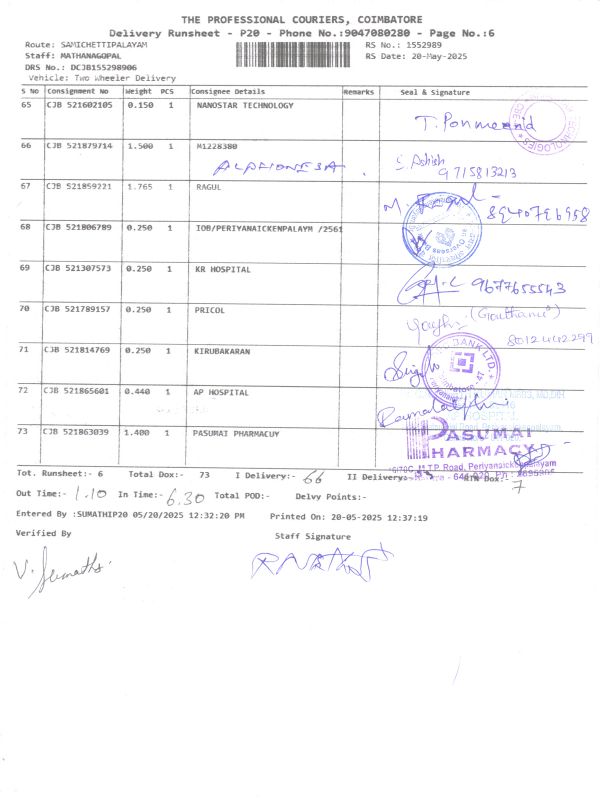 THE PROFESSIONAL COURIERS, COIMBATORE
Delivery Runsheet - P20 - Phone No.:9047080280 - Page No.:6
Route: SAMICHETTIPALAYAM RS No.: 1552989
Staff: MATHANAGOPAL RS Date: 20-May-2025
DRS No.: DCJB155298906
Vehicle: Two Wheeler Delivery
S No Consignment No Weight PCS Consignee Details Remarks Seal & Signature
65 CJB 521602105 0.150 1 NANOSTAR TECHNOLOGY
66 CJB 521879714 1.500 1 M1228380
9715813213
67 CJB 521859221 1.765 1 RAGUL
68 CJB 521806789 0.250 1 IOB/PERIYANAICKENPALAYM /2561
69 CJB 521307573 0.250 1 KR HOSPITAL
9677655543
70 CJB 521789157 0.250 1 PRICOL
71 CJB 521814769 0.250 1 KIRUBAKARAN
BANK LTD.
72 CJB 521865601 0.440 1 AP HOSPITAL
73 CJB 521863039 1.400 1 PASUMAI PHARMACUY
PASUMAI
PHARMACY
T.P. Road, Periyanaickenpalayam
Tot. Runsheet:- 6 Total Dox:- 73 I Delivery:- 66 II Delivery:- RTN Dox: 7
Out Time:- 1.10 In Time:- 6.30 Total POD:- Delvy Points:-
Entered By :SUMATHIP20 05/20/2025 12:32:20 PM Printed On: 20-05-2025 12:37:19
Verified By Staff Signature
V. Sumathi